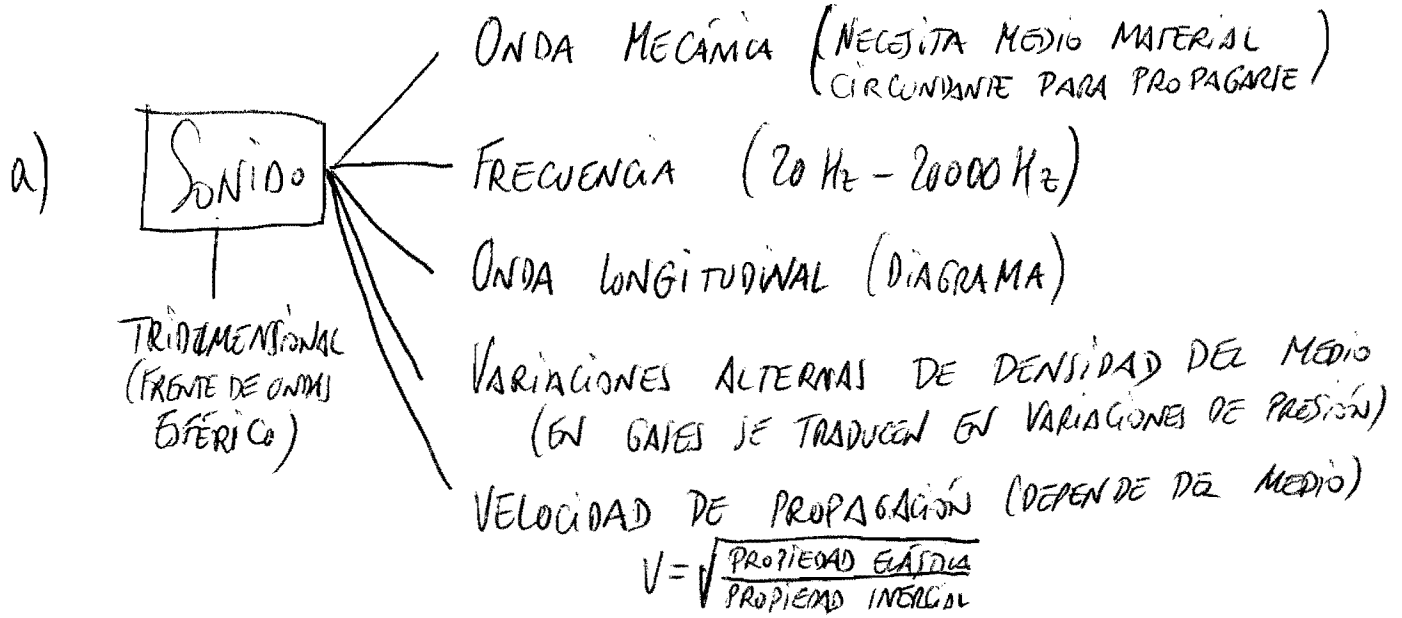 a)
SONIDO
TRIDIMENSIONAL
(FRENTE DE ONDAS
ESFÉRICO)
ONDA MECÁNICA (NECESITA MEDIO MATERIAL
CIRCUNDANTE PARA PROPAGARSE)
FRECUENCIA (20 Hz - 20000 Hz)
ONDA LONGITUDINAL (DIAGRAMA)
VARIACIONES ALTERNAS DE DENSIDAD DEL MEDIO
(EN GASES SE TRADUCEN EN VARIACIONES DE PRESIÓN)
VELOCIDAD DE PROPAGACIÓN (DEPENDE DEL MEDIO)
V = √(PROPIEDAD ELÁSTICA
PROPIEDAD INERCIAL)